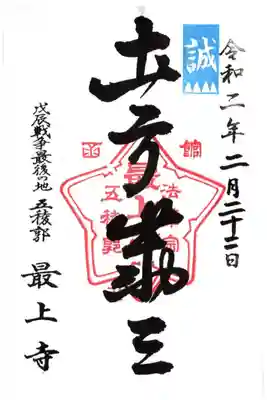 令和二年二月二十二日
誠
土方歳三
函館
五稜郭
戊辰戦争最後の地 五稜郭
最上寺